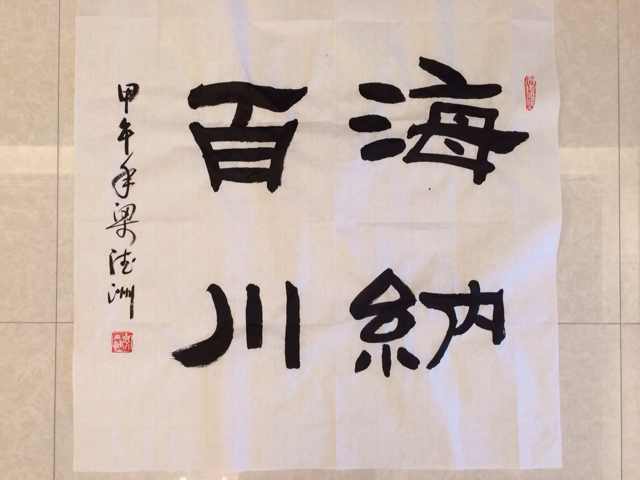 海納
百川
甲午年梁德洲